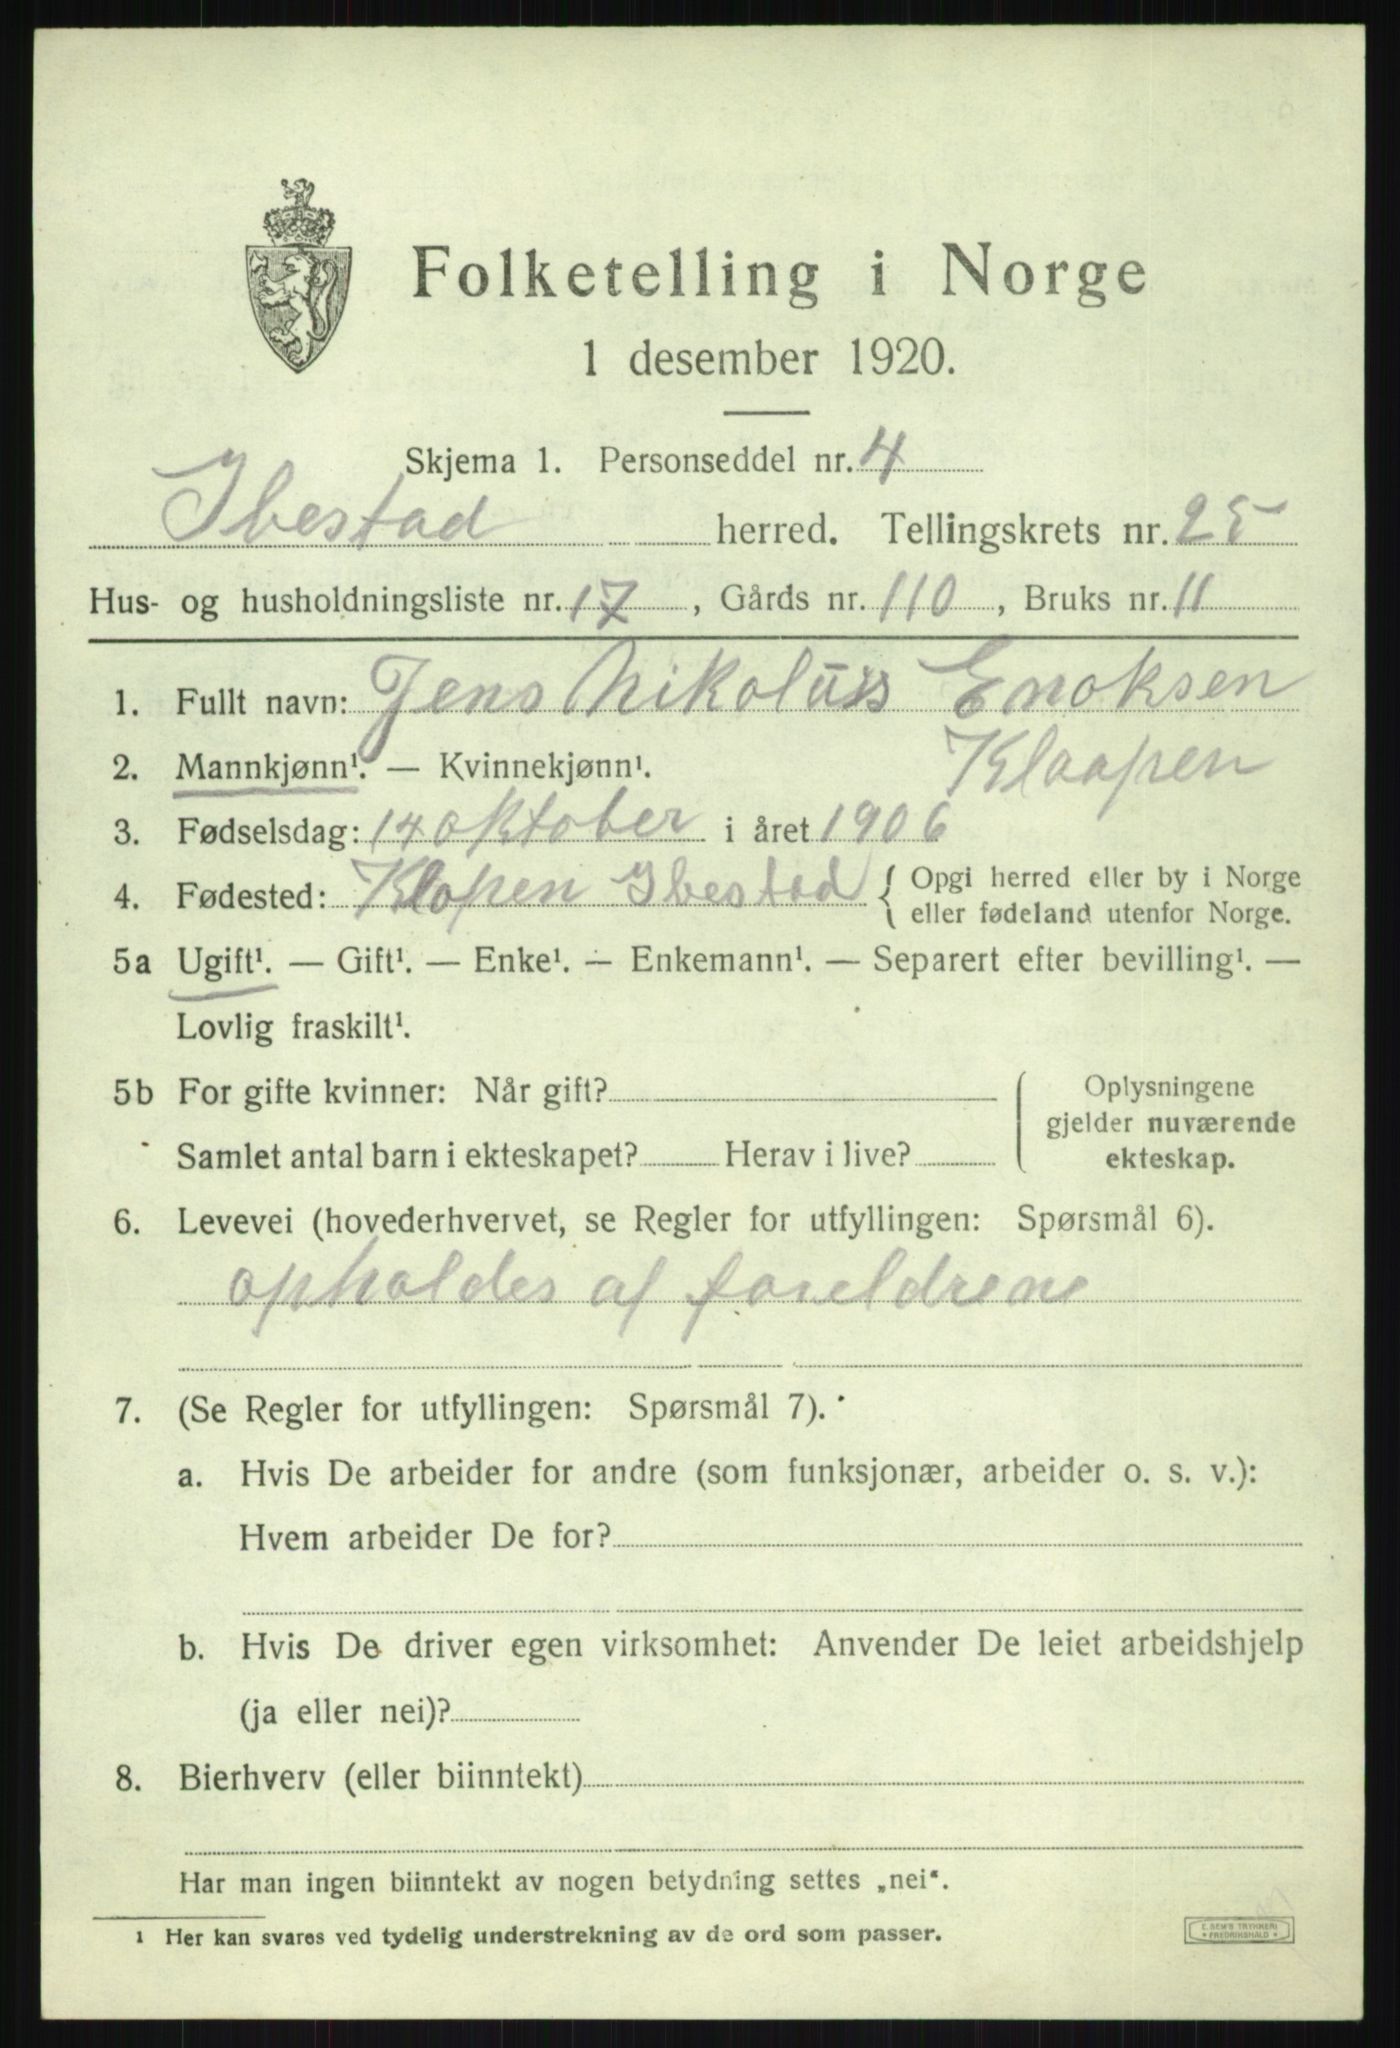 Folketelling i Norge
1 desember 1920.
Skjema 1. Personseddel nr. 4
Ibestad herred. Tellingskrets nr. 25
Hus- og husholdningsliste nr. 17, Gårds nr. 110, Bruks nr. 11
1. Fullt navn: Jens Nikolaus Enoksen
Klaapen
2. Mannkjønn¹. — Kvinnekjønn¹.
3. Fødselsdag: 14 oktober i året 1906
4. Fødested: Klopen Ibestad { Opgi herred eller by i Norge
eller fødeland utenfor Norge.
5a Ugift¹. — Gift¹. — Enke¹. — Enkemann¹. — Separert efter bevilling¹. —
Lovlig fraskilt¹.
5b For gifte kvinner: Når gift?
Samlet antal barn i ekteskapet? Herav i live?
Oplysningene
gjelder nuværende
ekteskap.
6. Levevei (hovederhvervet, se Regler for utfyllingen: Spørsmål 6).
opholdes af foreldrene
7. (Se Regler for utfyllingen: Spørsmål 7).
a. Hvis De arbeider for andre (som funksjonær, arbeider o. s. v.):
Hvem arbeider De for?
b. Hvis De driver egen virksomhet: Anvender De leiet arbeidshjelp
(ja eller nei)?
8. Bierhverv (eller biinntekt)
Har man ingen biinntekt av nogen betydning settes „nei“.
¹ Her kan svares ved tydelig understrekning av de ord som passer.
E. SEM'S TRYKKERI
FREDRIKSHALD